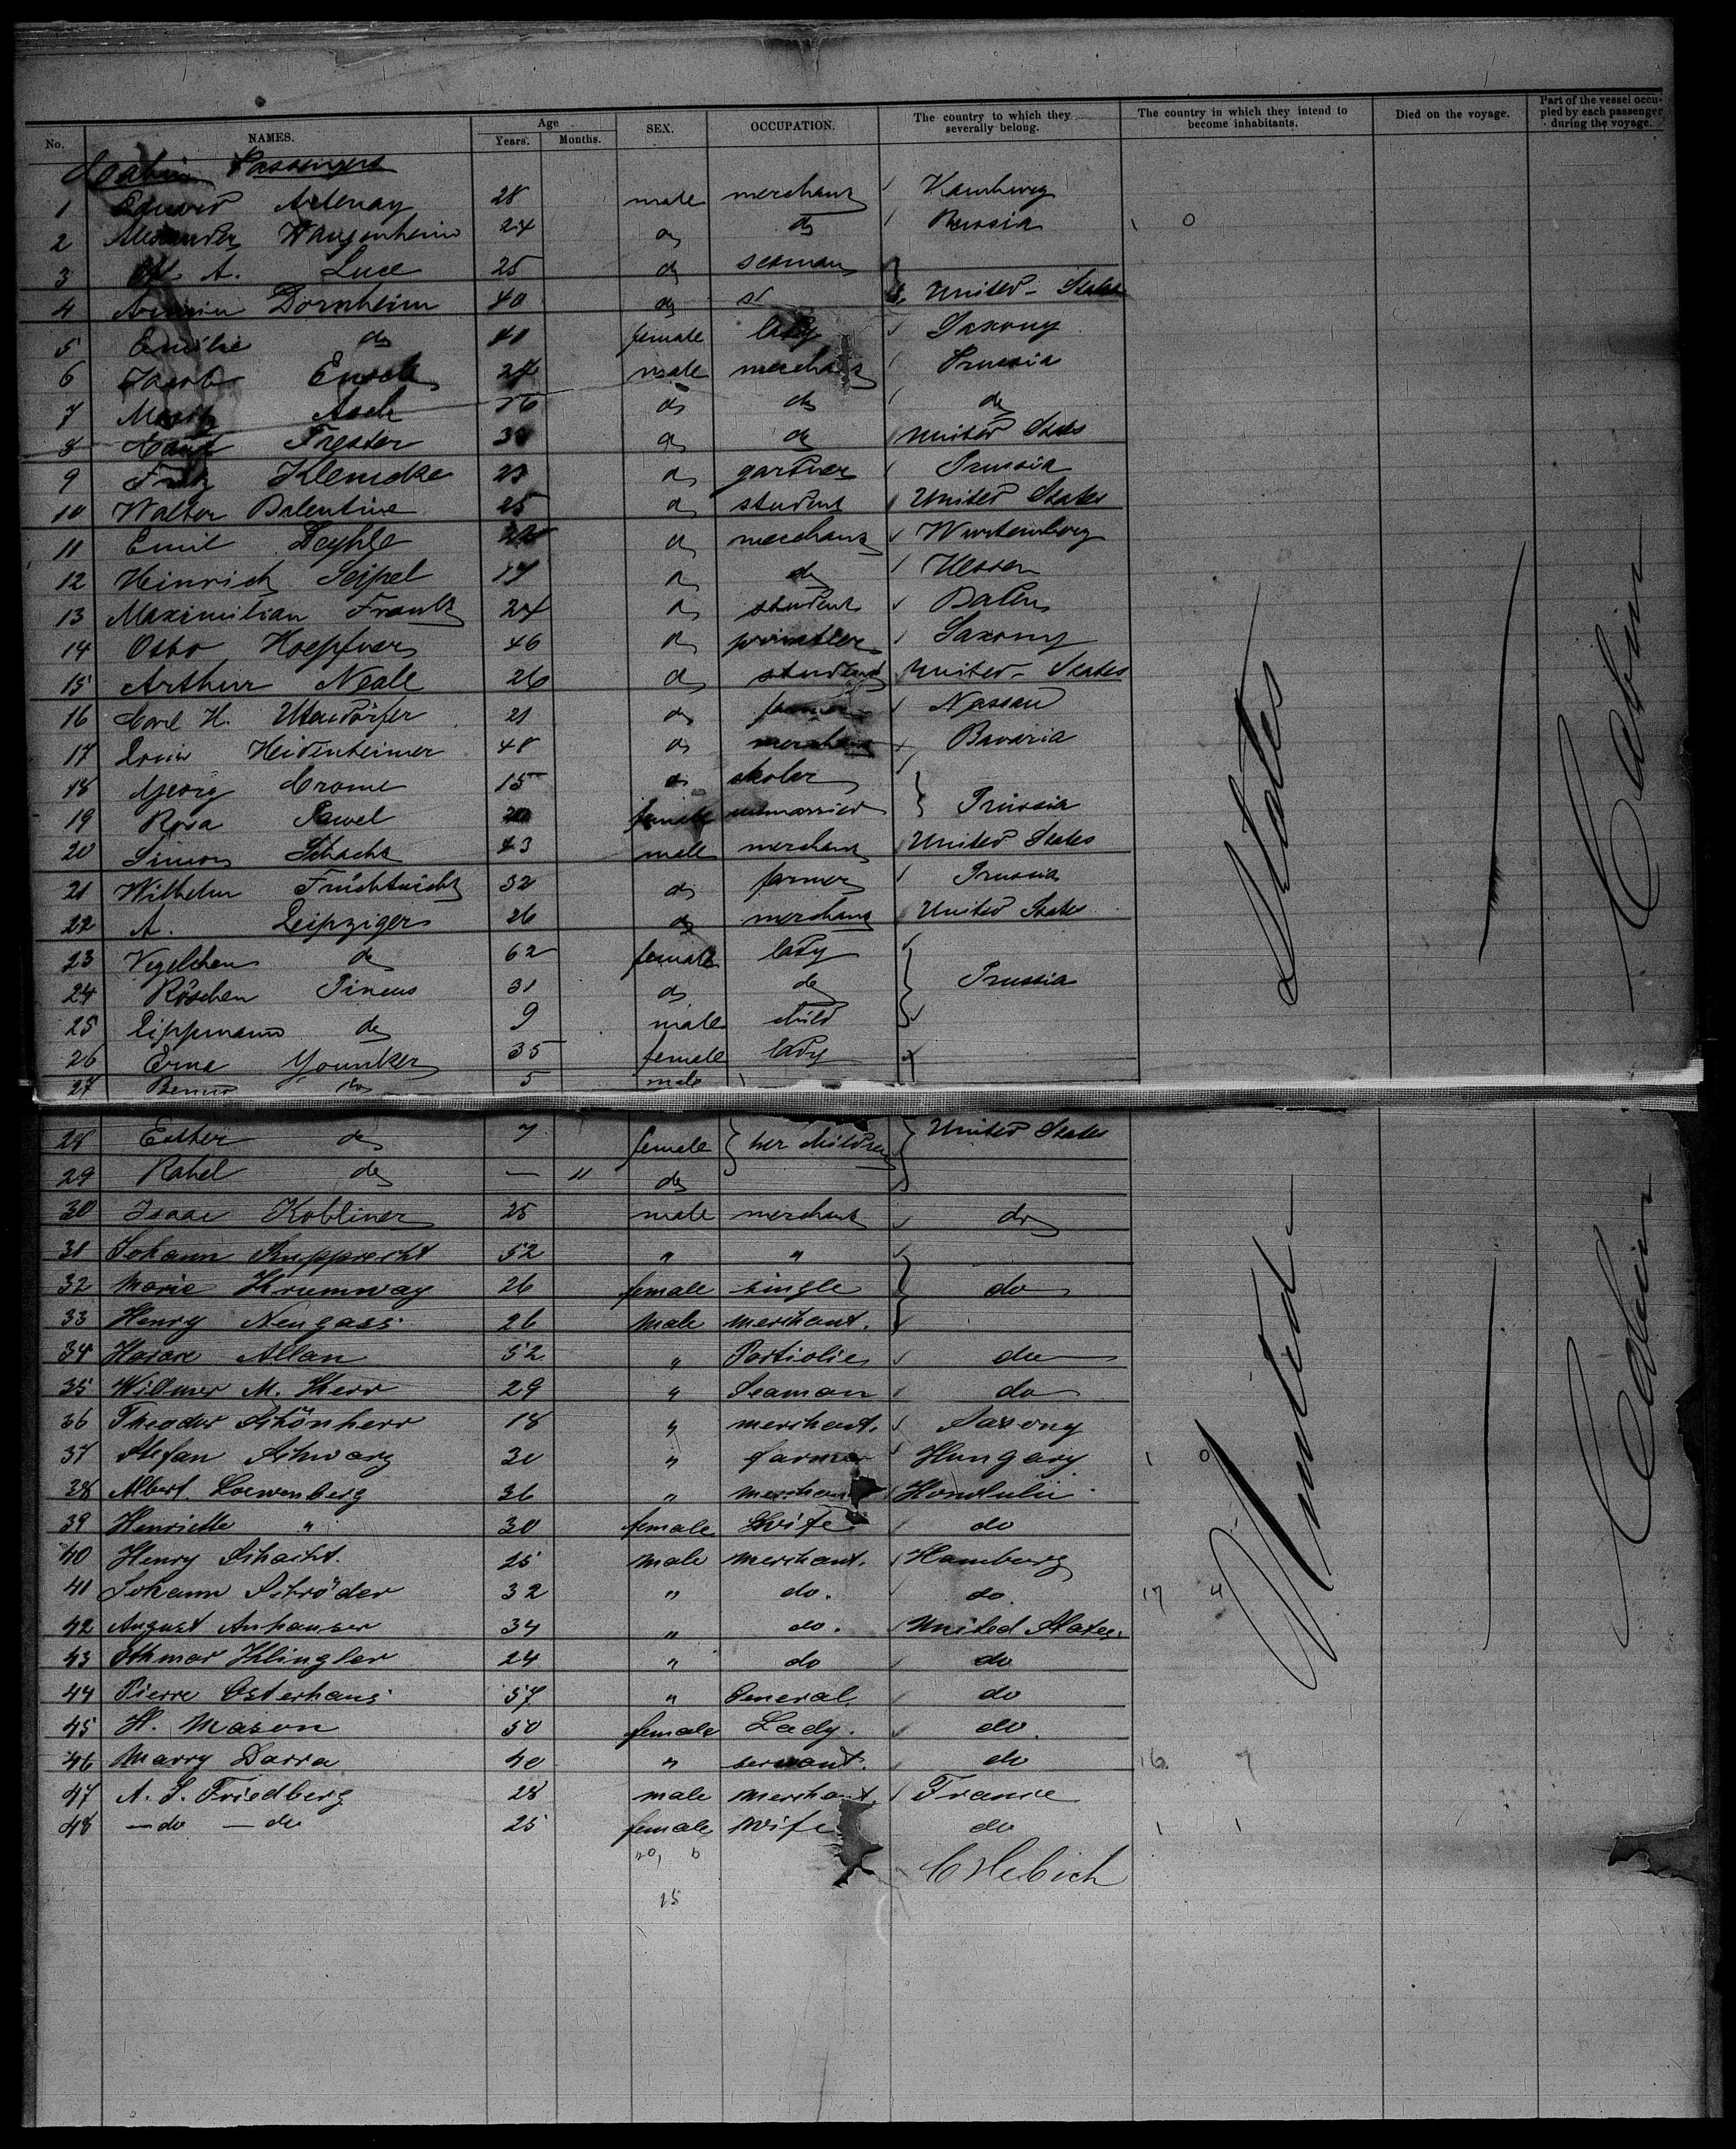 No. NAMES. Age Years. Months. SEX. OCCUPATION. The country to which they severally belong. The country in which they intend to become inhabitants. Died on the voyage. Part of the vessel occupied by each passenger during the voyage.
Cabin Passengers
1 28 male merchant Hamburg
2 Alexander Wangenheim 24 do do Russia 1 0
3 A. Luce 25 do seaman
4 Armin Dornheim 40 do United-States
5 Emilie do female lady Saxony
6 Jacob male merchant Prussia
7 Asch 16 do do do
8 Trester do do United States
9 Fritz Klemcke 23 do gardner Prussia
10 Walter Balentine 25 do student United States
11 Emil Deyhle do merchant Wurtemberg
12 Heinrich Seipel 17 do do Hessen
13 Maximilian Frank 24 do student Baden
14 Otto Hoepfner 46 do Saxony
15 Arthur Neale 26 do student United-States
16 Carl H. 21 do farmer Nassau
17 Louis Heidenheimer 48 do merchant Bavaria
18 Georg Crome 15 do skoler
19 Rosa female unmarried Prussia
20 Simon Schacht 43 male merchant United States
21 Wilhelm Früchtnicht 32 do farmer Prussia
22 A. Leipziger 26 do merchant United States
23 Vogelchen do 62 female lady
24 Röschen Pincus 31 do do Prussia
25 Lippmann do 9 male child
26 Erna Younker 35 female lady
27 Benno do 5 male
28 Esther do 7 female her children United States
29 Rahel do — " do
30 Isaac Kobliner 25 male merchant do
31 Johann Rupprecht 52 " "
32 Marie Krumway 26 female single do
33 Henry Neugass 26 male merchant.
34 Allan 52 " do
35 Willmer M. Herr 29 " Seaman do
36 Theodor Schönherr 18 " merchant. Saxony
37 Stefan Schwarz 30 " farmer Hungary 1 0
38 Albert Loewenberg 36 " merchant Honolulu
39 Henriette " 30 female wife do
40 Henry Schacht. 25 male merchant. Hamburg
41 Johann Schröder 32 " do. do. 17 4
42 August Anhauser 34 " do. United States.
43 Othmar Klingler 24 " do do
44 Pierre Osterhaus 57 " General do
45 H. Mason 50 female Lady. do.
46 Marry Darra 40 " servant. do 16 7
47 A. S. Friedberg 28 male merchant. France
48 — do — do 25 female wife do 1 1
C Hebich
United States
Cabin
Cabin